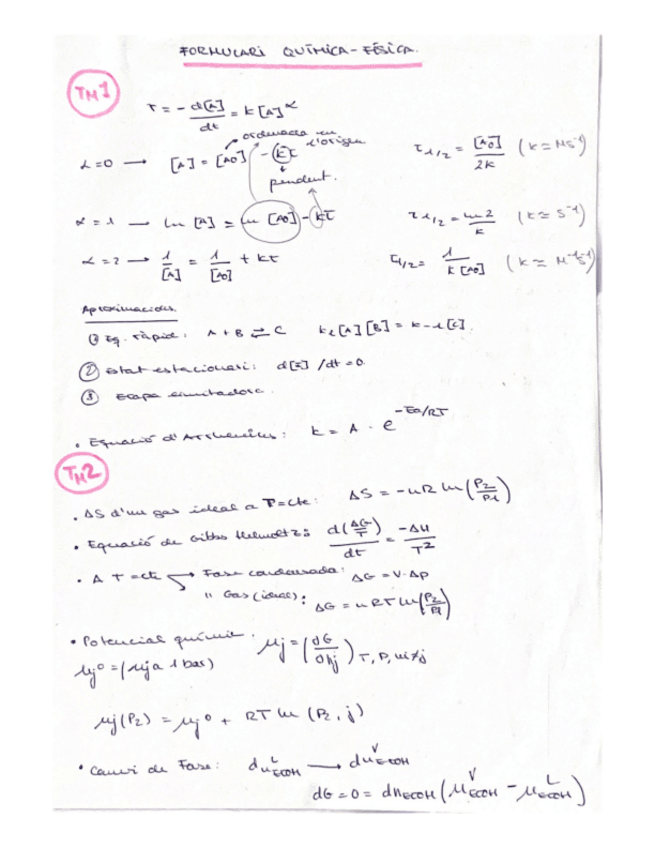 FORMULARI QUÍMICA-FÍSICA.
TM1
r = - d[A]/dt = k [A]^α
α=0 → [A] = [A0] - kt
ordenada en l'origen
pendent.
τ1/2 = [A0]/2k (k = Ms⁻¹)
α=1 — ln [A] = ln [A0] - kt
τ1/2 = ln 2/k (k = s⁻¹)
α=2 → 1/[A] = 1/[A0] + kt
τ1/2 = 1/k[A0] (k = M⁻¹s⁻¹)
Aproximacions.
① Eq. ràpid: A + B ⇌ C k1[A][B] = k-1[C].
② Estat estacionari: d[I]/dt = 0.
③ Etapa limitadora.
• Equació d'Arrhenius: k = A · e^(-Ea/RT)
TM2
• ΔS d'un gas ideal a T=cte: ΔS = -nR ln(P2/P1)
• Equació de Gibbs Helmoltz: d(ΔG/T)/dt = -ΔH/T²
• A T=cte → Fase condensada: ΔG = V·ΔP
" Gas (ideal): ΔG = nRT ln(P2/P1)
• Potencial químic. μj = (dG/dnj) T, P, ni≠j
μj° = (μj a 1 bar)
μj(P2) = μj° + RT ln (P2, j)
• Canvi de Fase: dn^L EtOH → dn^V EtOH
dG = 0 = dnEtOH (μ^V EtOH - μ^L EtOH)